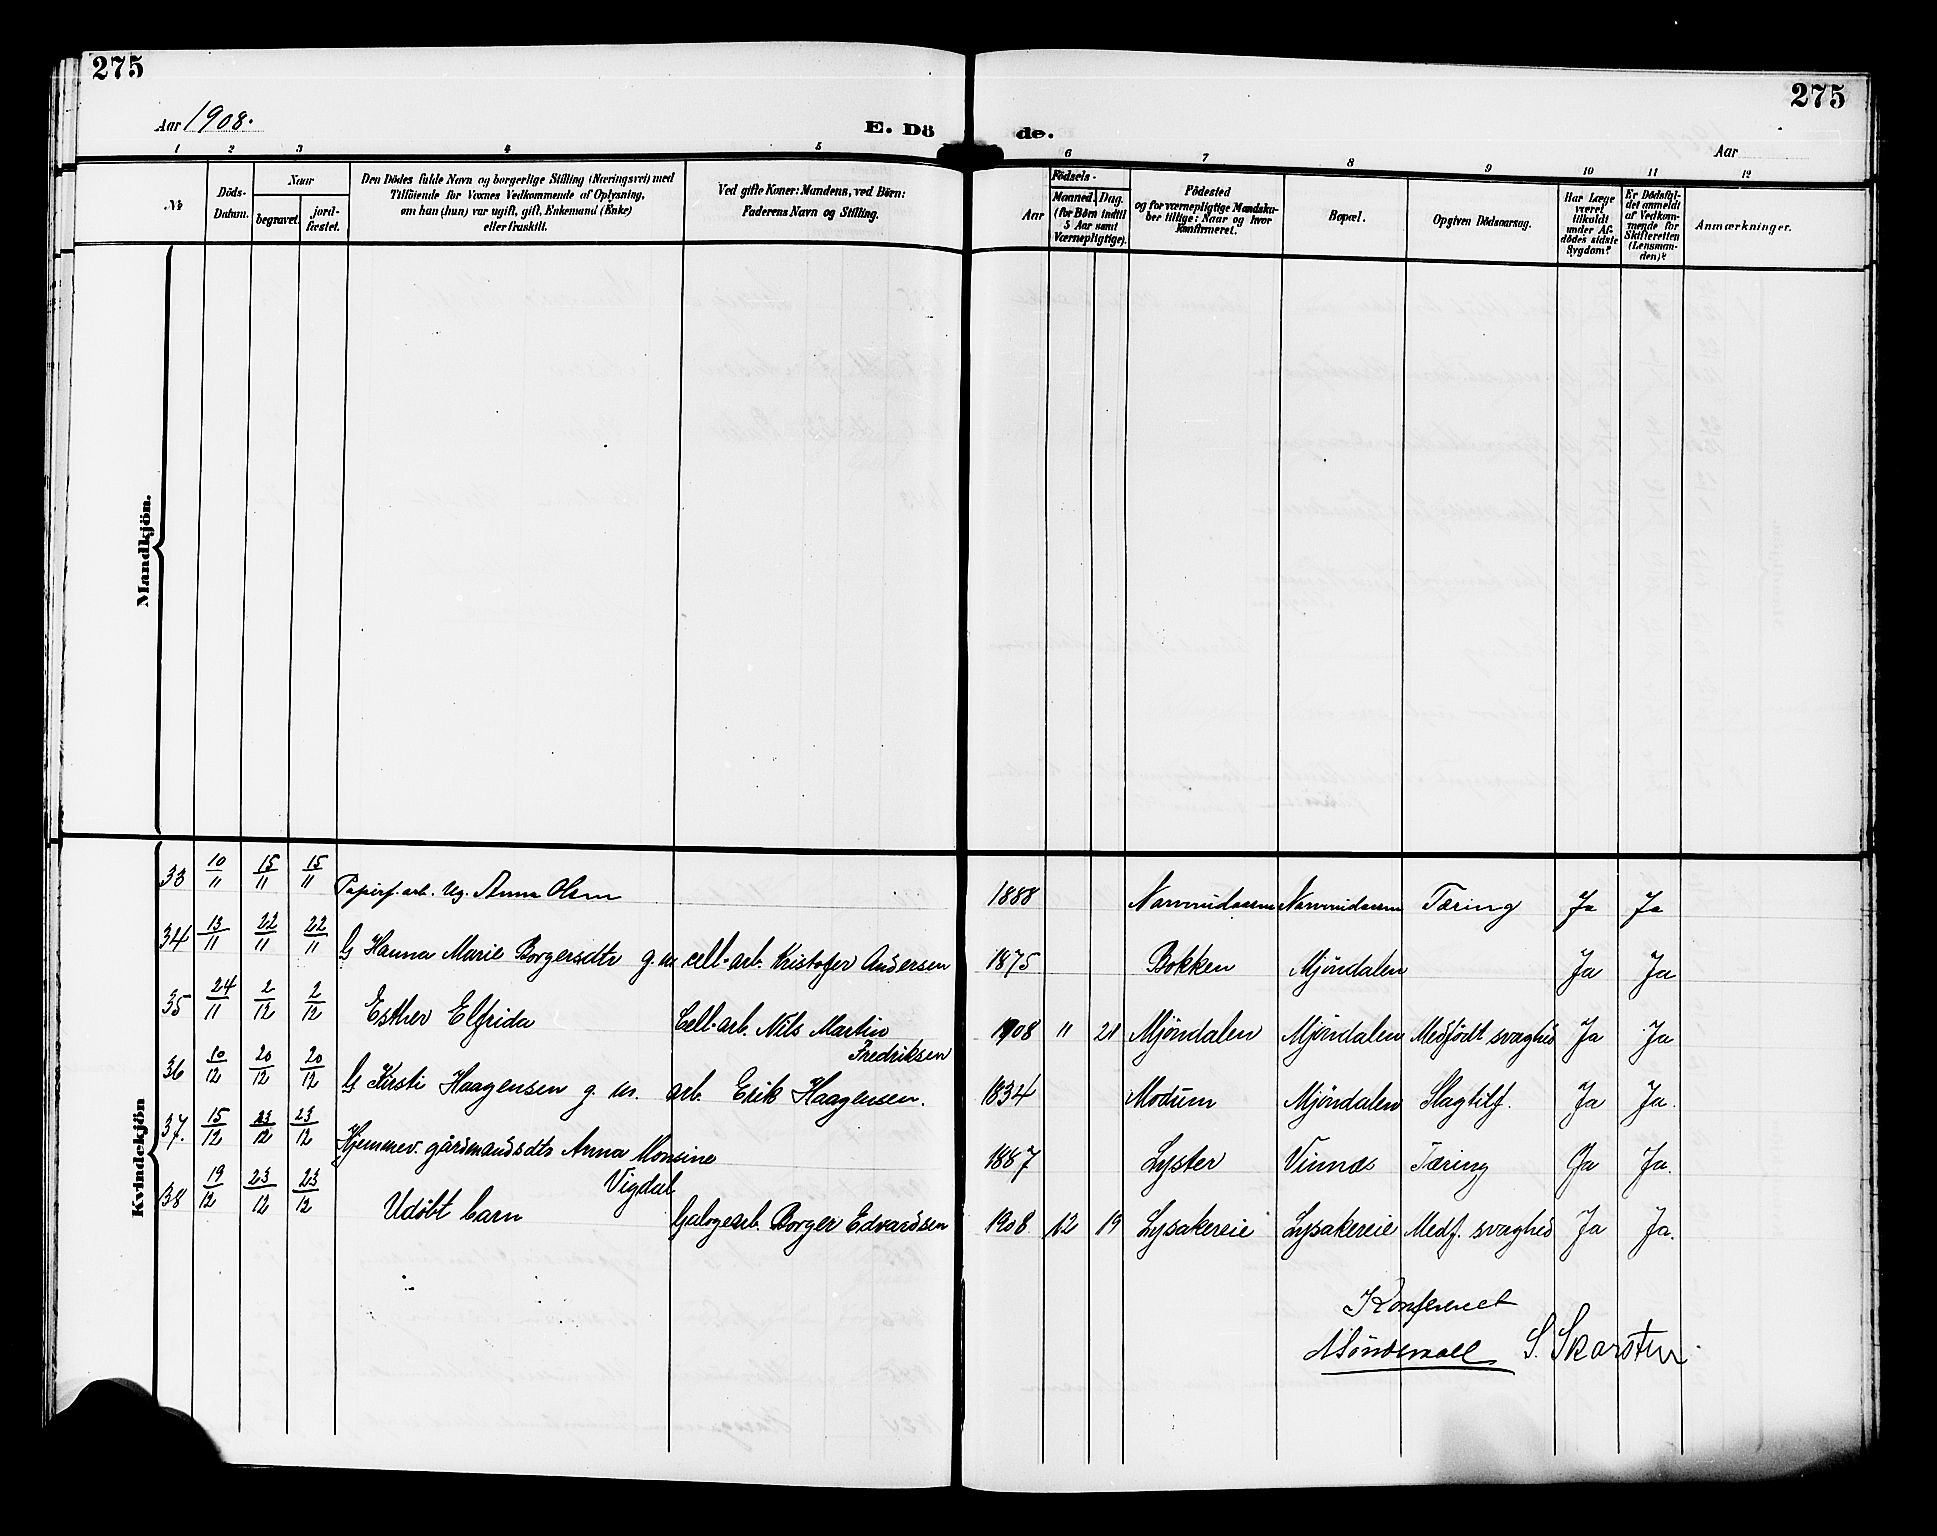 275
275
Aar 1908.
E. Dö de.
Aar
1 2 3 4 5 6 7 8 9 10 11 12
№
Döds-
Datum.
Naar
begravet.
jord-
fæstet.
Den Dödes fulde Navn og borgerlige Stilling (Næringsvei) med
Tilföiende for Voxnes Vedkommende af Oplysning,
om han (hun) var ugift, gift, Enkemand (Enke)
eller fraskilt.
Ved gifte Koner: Mandens, ved Börn:
Faderens Navn og Stilling.
Födsels-
Aar
Maaned. Dag.
(for Börn indtil
5 Aar samt
Værnepligtige).
Födested
og for værnepligtige Mandska-
ber tillige: Naar og hvor
konfirmeret.
Bopæl.
Opgiven Dödsaarsag.
Har Læge
været
tilkaldt
under Af-
dödes sidste
Sygdom?
Er Dödsfal-
det anmeldt
af Vedkom-
mende for
Skifteretten
(Lensman-
den)?
Anmærkninger.
Mandkjön.
Kvindekjön
33 10/11 15/11 15/11 Papirf. arb. Ug. Anna Olsen 1888 Tæring Ja Ja
34 13/11 22/11 22/11 G Hanna Marie Borgersdtr g. m. cell-arb. Kristofer Andersen 1875 Bokken Mjöndalen Ja Ja
35 24/11 2/12 2/12 Esther Elfrida Cell-arb. Nils Martin Fredriksen 1908 11 21 Mjöndalen Mjöndalen Medfødt svaghed Ja Ja
36 10/12 20/12 20/12 G Kirsti Haagensen g. m. arb. Erik Haagensen. 1834 Modum Mjöndalen Slagtilf. Ja Ja.
37. 15/12 23/12 23/12 Hjemmev. gårdmandsdtr Anna Monsine Vigdal 1887 Lyster Vinnes Tæring Ja Ja.
38 19/12 23/12 23/12 Udöbt barn Galogearb. Borger Edvardsen 1908 12 19 Lysakereie Lysakereie Medf. svaghed Ja Ja.
Konfereret
S. Skarsten